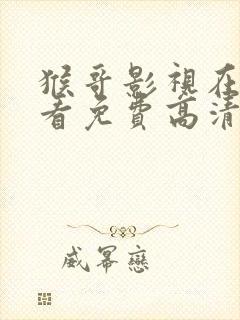 猴哥影視在
看免費高清
威冪戀